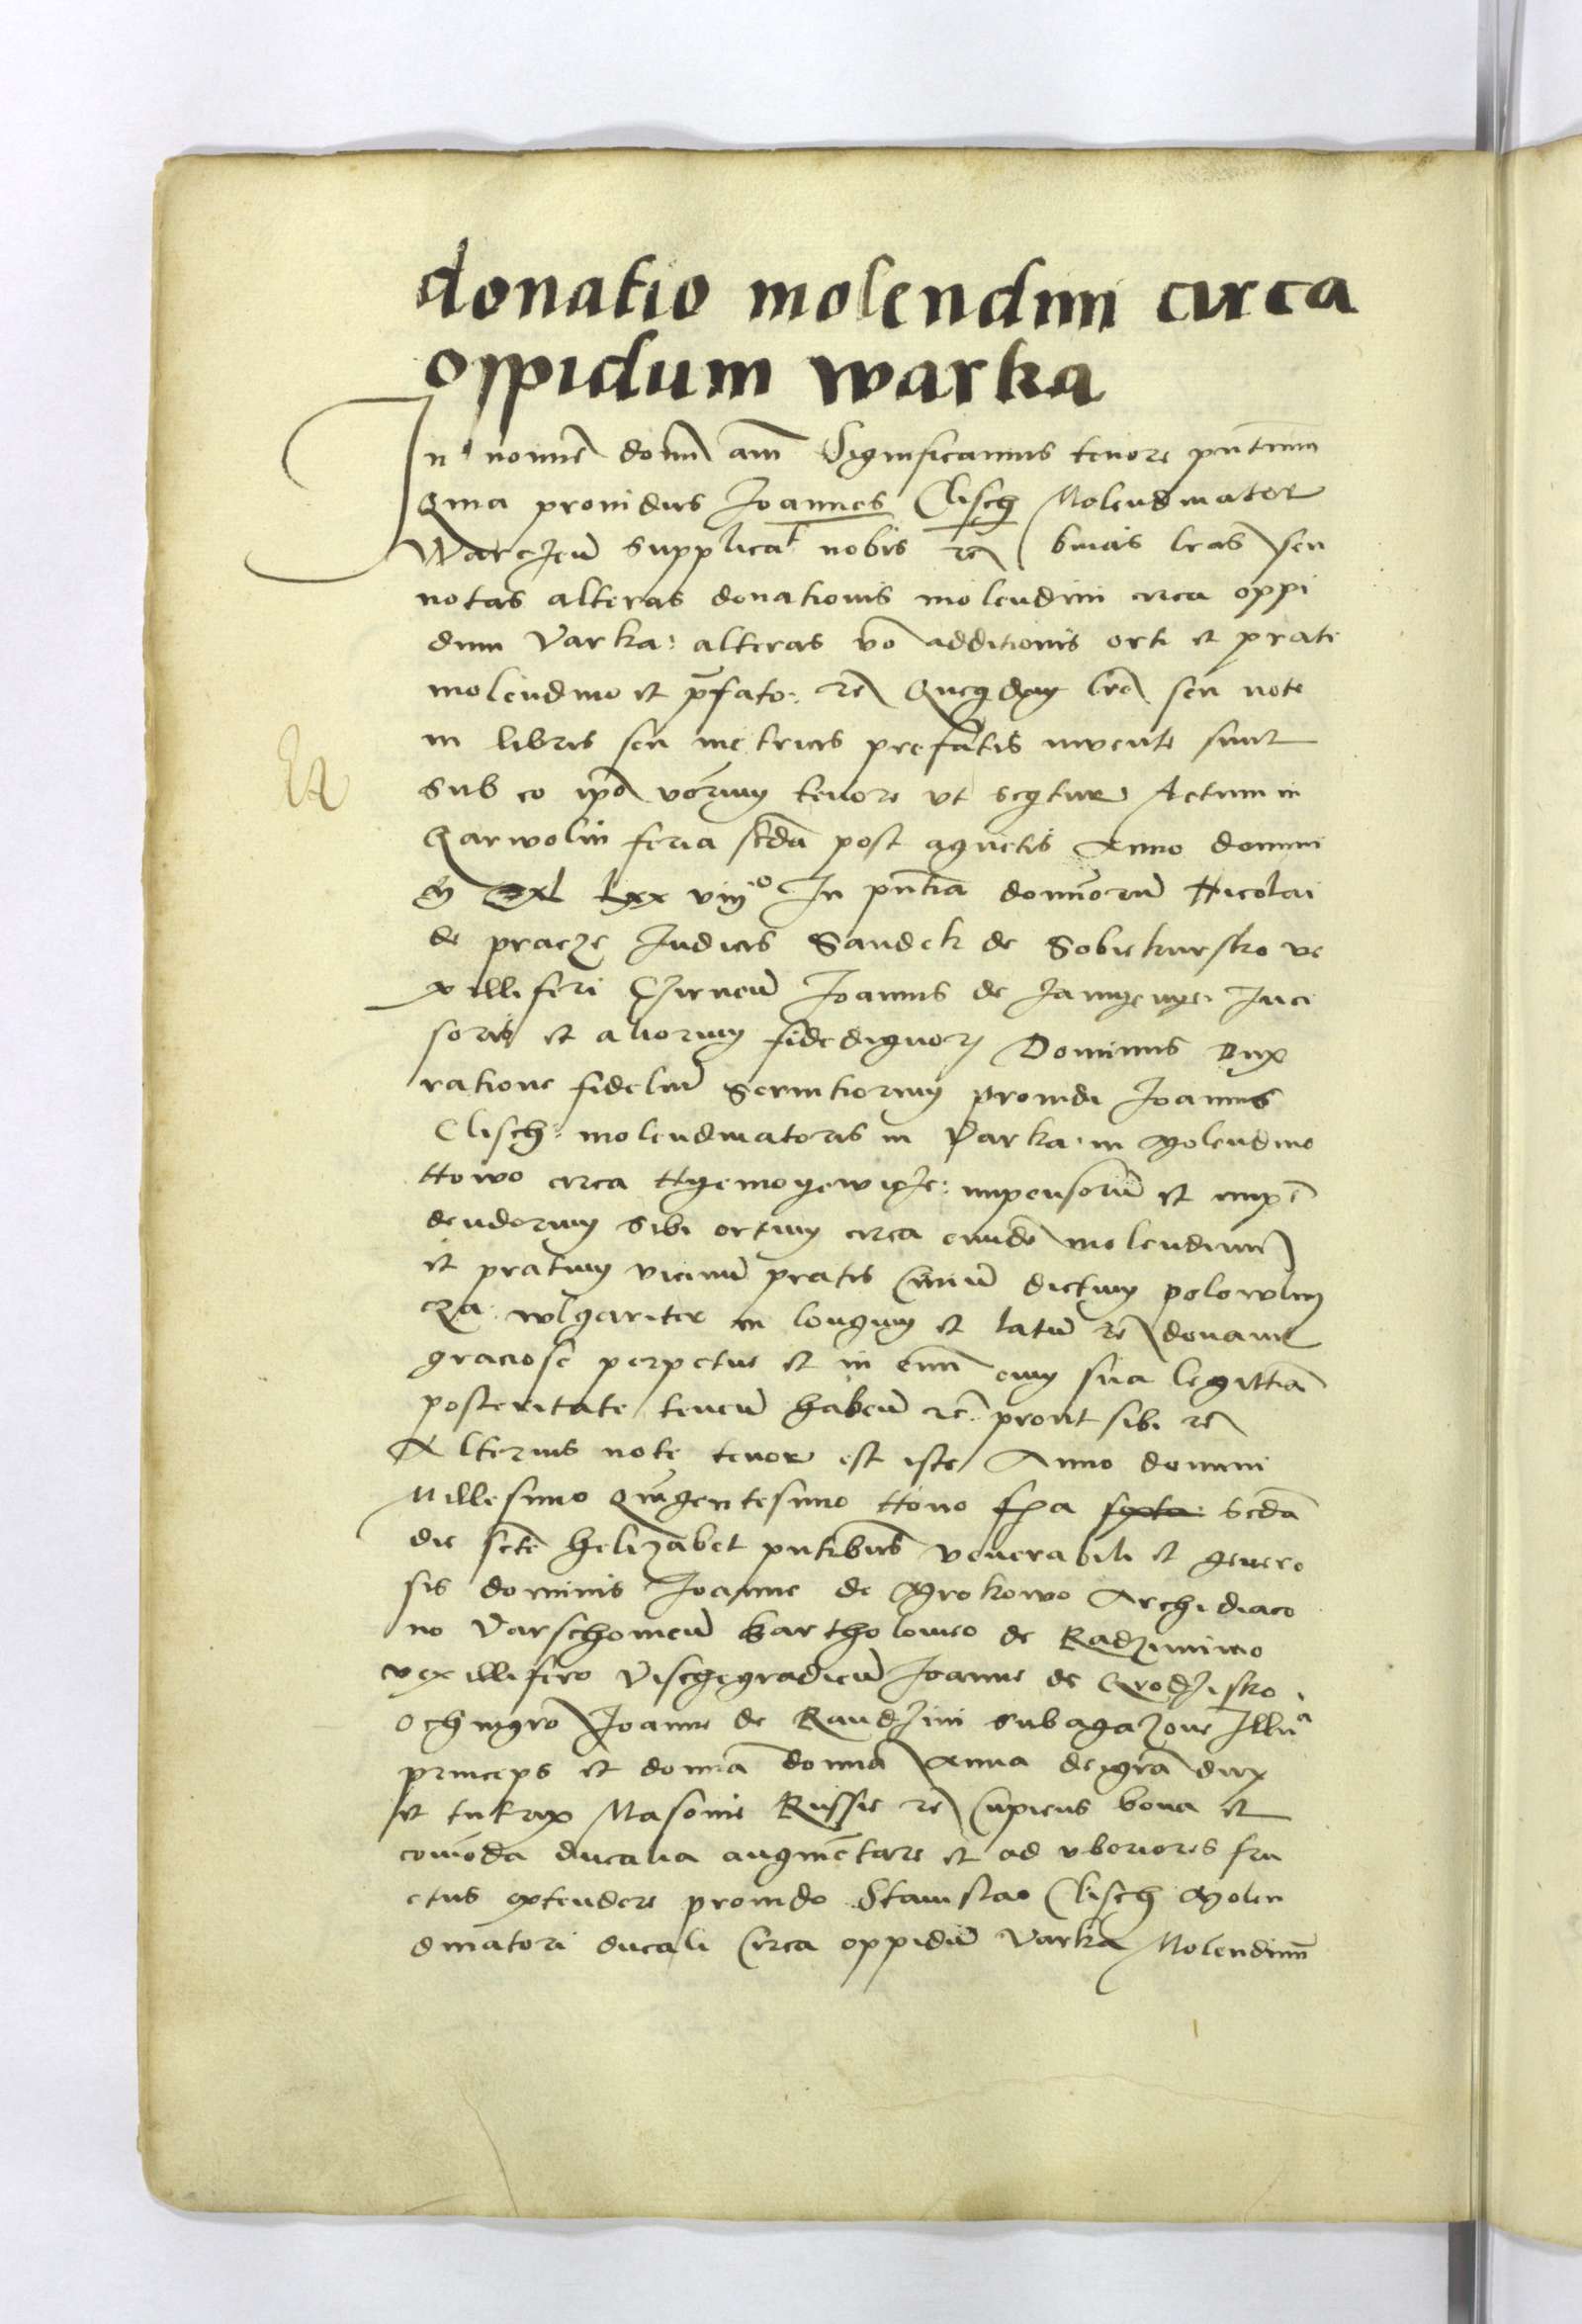 donatio molendini circa
oppidum warka
In nomine domni amen Significamus tenore pntium
Quia providus Joannes Clisch Molendinator
Warcien supplicat nobis re binas lras seu
notas alteras donationis molendini circa oppi
dum Varka: alteras vo additionis orti et prate
molendino et prefato: re Quequidem lre seu note
in libris seu metricis prefatis invente sunt
sub eo ipo verum tenore ut seqtur Actum in
Garwolin feria scda post agnetis Anno domini
M lxx viii° In pntia domnorum Nicolai
de pracze Judicis Sandek de Sobiekursko ve
xilliferi Czirnen Joannis de Inci
soris et aliorum fidedignorum Dominus Dux
ratione fidelium Servitiorum providi Joannis
Clisch: molendinatoris in Varka: in Molendino
Novo circa Nyemoyewicze: impensorum et impe
dendorum sibi ortum circa eundem molendinum
et pratum vicinum pratis Civium dictum polowlin
cza: wlgariter in longum et latum re donavit
graciose perpetue et in evum cum sua legittima
posteritate tenen haben re: prout sibi re
Alterius note tenor est iste Anno domini
Millesimo Quingentesimo Nono fra sexta: scda
die scte helizabet pntibus venerabili et genero
sis dominis Joanne de Mrokowo Archidiaco
no Varschovien Bartholomeo de Radzimino
vexillifero Vischegradien Joanne de Grodzisko
Ochmgro Joanne de Randzini subagazone Illu
princeps et domina domina Anna dei gra dux
et tutrix Masovie Russie re Cupiens bona et
comoda ducalia augmentare et ad uberiores fru
ctus extendere provido Stanislao Clisch Molen
dinatori ducali Circa oppidum Varka Molendinum